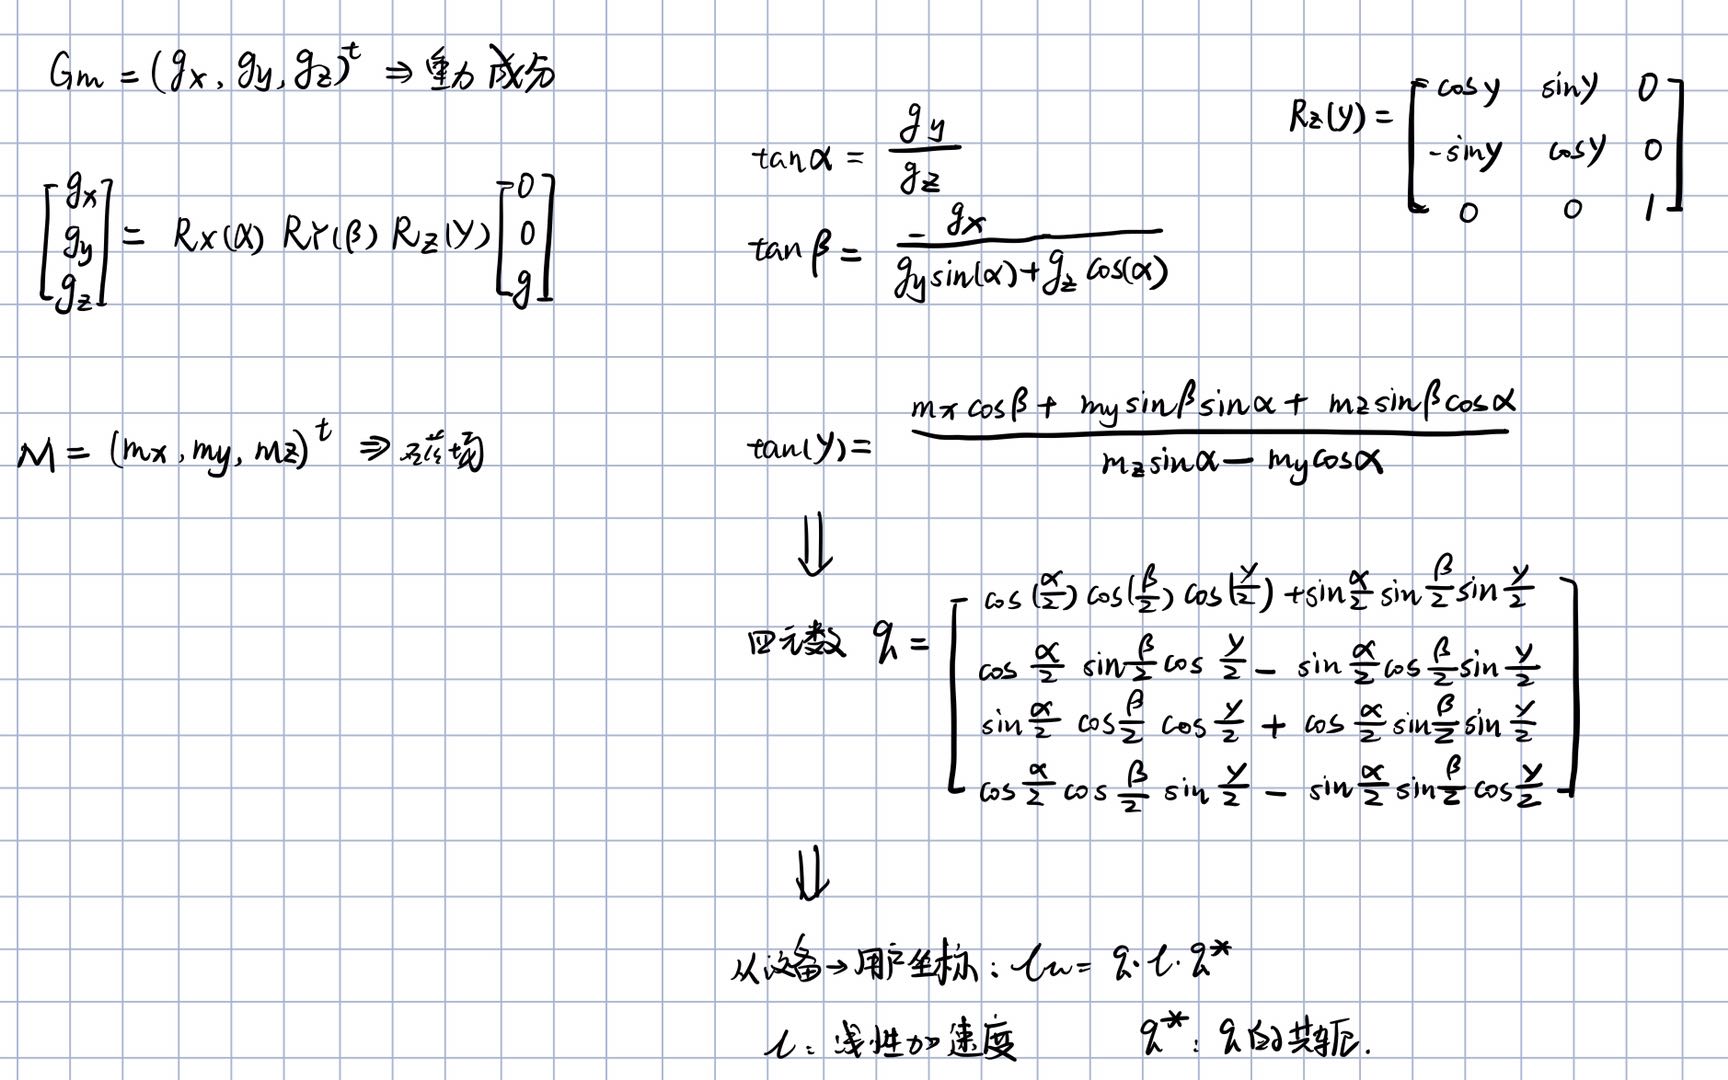 Gm = (gx, gy, gz)^t ⇒ 重力成分
[gx; gy; gz] = Rx(α) RY(β) Rz(γ) [0; 0; g]
M = (mx, my, mz)^t ⇒ 磁场
tanα = gy / gz
tanβ = -gx / (gy sin(α) + gz cos(α))
Rz(γ) = [cosγ sinγ 0; -sinγ cosγ 0; 0 0 1]
tan(γ) = (mx cosβ + my sinβ sinα + mz sinβ cosα) / (mz sinα - my cosα)
⇓
四元数 q = [
cos(α/2) cos(β/2) cos(γ/2) + sin α/2 sin β/2 sin γ/2
cos α/2 sin β/2 cos γ/2 - sin α/2 cos β/2 sin γ/2
sin α/2 cos β/2 cos γ/2 + cos α/2 sin β/2 sin γ/2
cos α/2 cos β/2 sin γ/2 - sin α/2 sin β/2 cos γ/2
]
⇓
从设备→用户坐标: lu = q·l·q*
l: 线性加速度 q*: q的共轭.